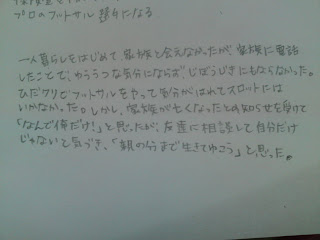 プロのフットサル選手になる
一人暮らしをはじめて、家族と会えなかったが、家族に電話
したことで、ゆううつな気分にならず、じぼうじきにもならなかった。
ひだクリでフットサルをやって気分がはれてスロットには
いかなかった。しかし、家族が亡くなったとの知らせを受けて
「なんで俺だけ!」と思ったが、友達に相談して自分だけ
じゃないと気づき、「親の分まで生きてゆこう」と思った。